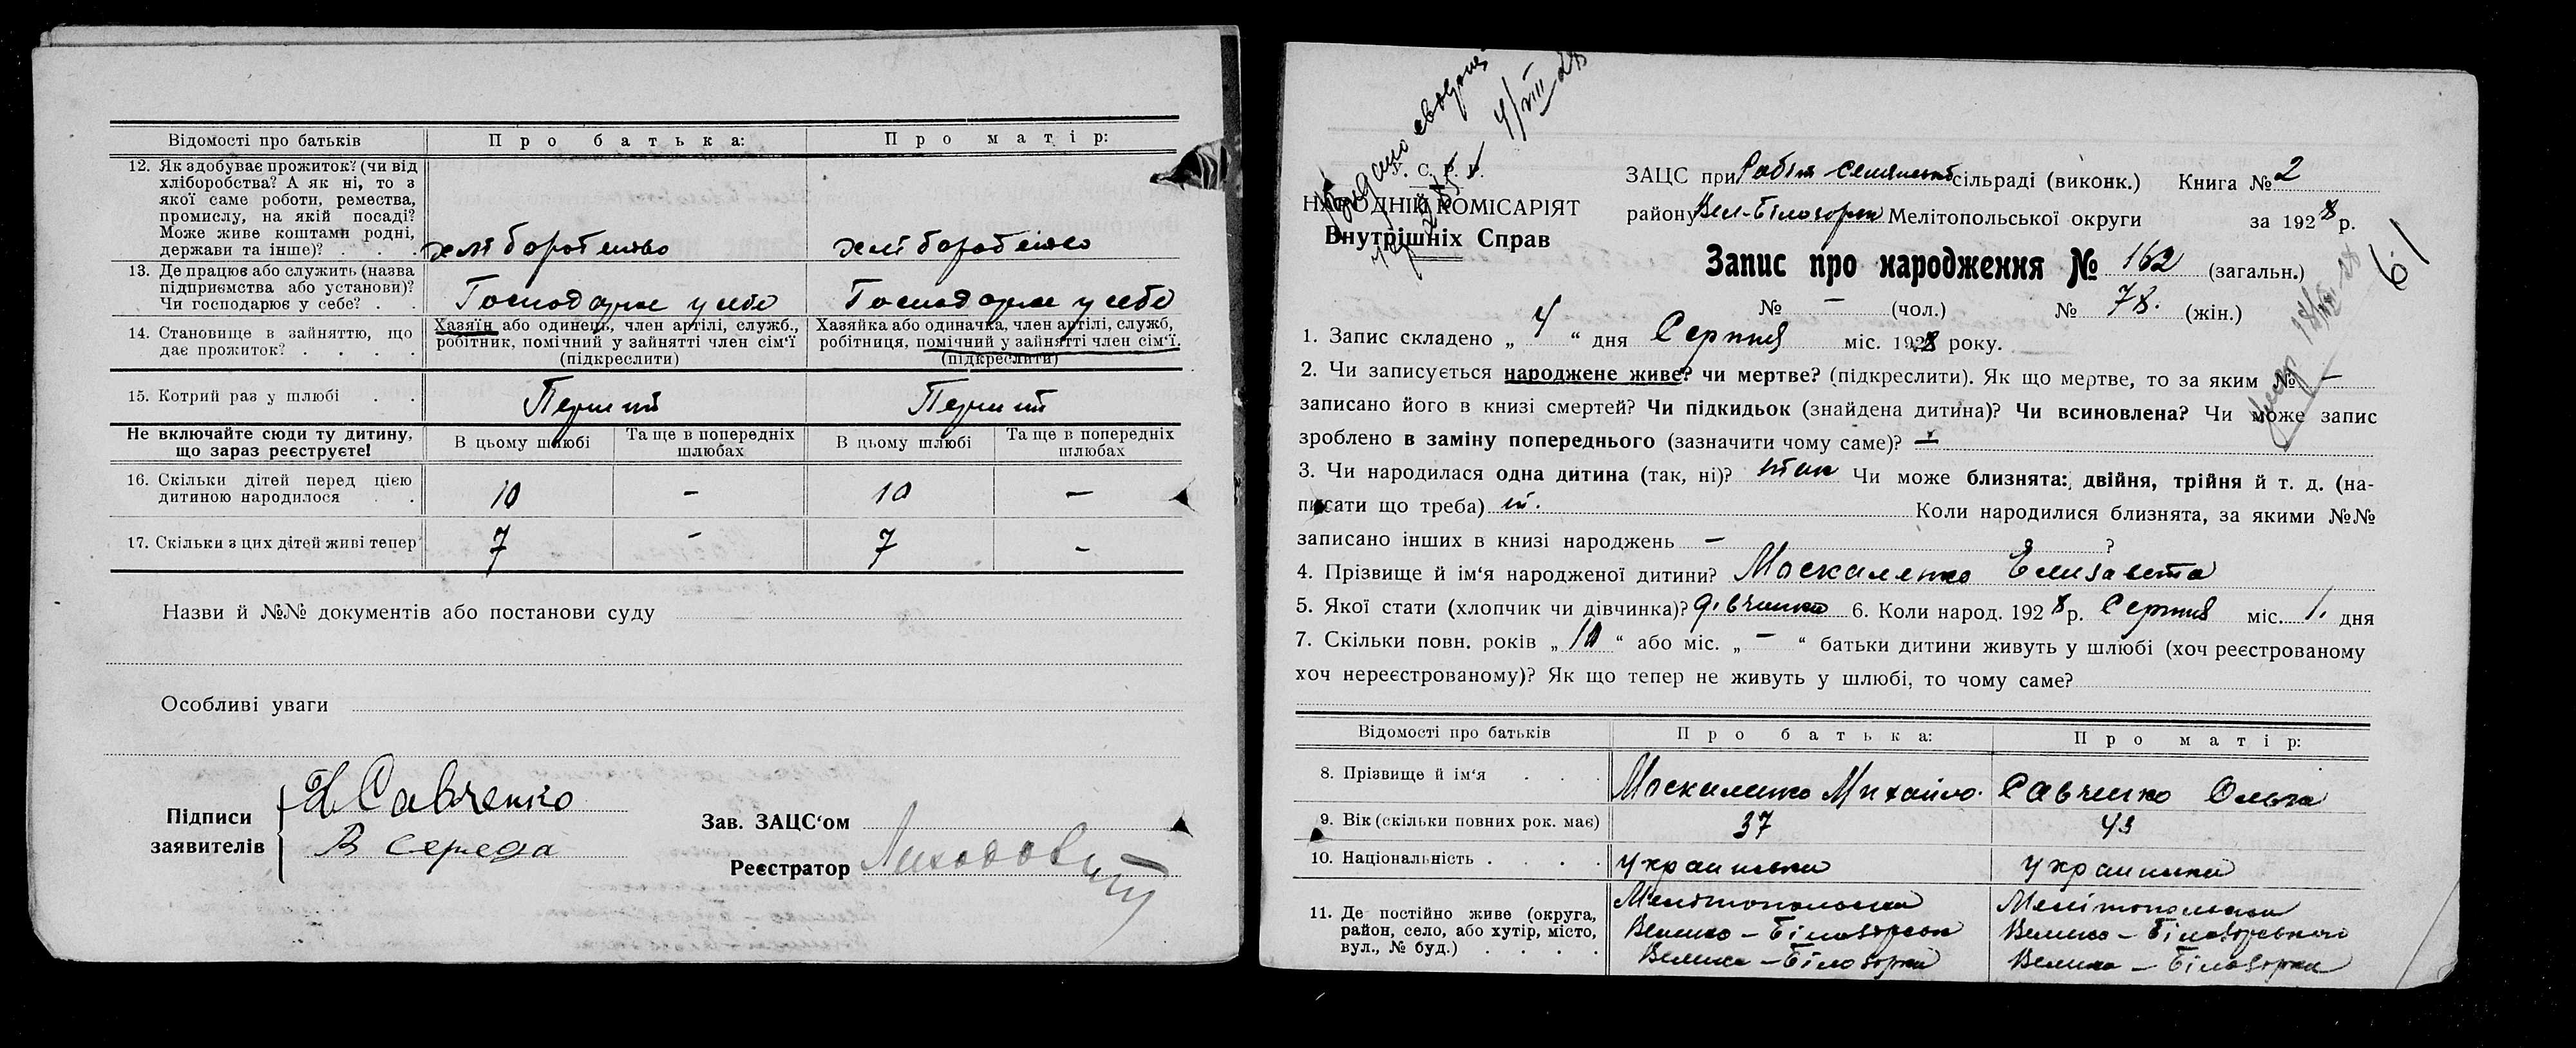 Відомості про батьків
Про батька:
Про матір:
12. Як здобуває прожиток? (чи від
хліборобства? А як ні, то з
якої саме роботи, ремества,
промислу, на якій посаді?
Може живе коштами родні,
держави та інше)? . . .
хліборобство
хліборобство
13. Де працює або служить (назва
підприємства або установи)?
Чи господарює у себе? . .
Господарює у себе
Господарює у себе
14. Становище в зайняттю, що
дає прожиток? . . . .
Хазяїн або одинець, член артілі, служб.,
робітник, помічний у зайнятті член сім'ї
(підкреслити)
Хазяйка або одиначка, член артілі, служб,
робітниця, помічний у зайнятті член сім'ї.
(підкреслити)
15. Котрий раз у шлюбі . .
Перший
Перший
Не включайте сюди ту дитину,
що зараз реєструєте!
В цьому шлюбі
Та ще в попередніх
шлюбах
В цьому шлюбі
Та ще в попередніх
шлюбах
16. Скільки дітей перед цією
дитиною народилося . .
10 – 10 –
17. Скільки з цих дітей живі тепер
7 – 7 –
Назви й №№ документів або постанови суду
Особливі уваги
Підписи
заявителів
Савченко
В Середа
Зав. ЗАЦС'ом
Реєстратор
Видано
4/VIII 28
У. С. Р. Р.
НАРОДНІЙ КОМІСАРІЯТ
Внутрішніх Справ
ЗАЦС при сільраді (виконк.) Книга № 2
району Вел-Білозорка Мелітопольської округи за 1928 р.
61
Запис про народження № 162 (загальн.)
№ – (чол.) № 78. (жін.)
1. Запис складено „ 4 “ дня Серпня міс. 1928 року.
2. Чи записується народжене живе? чи мертве? (підкреслити). Як що мертве, то за яким № –
записано його в книзі смертей? Чи підкидьок (знайдена дитина)? Чи всиновлена? Чи може запис
зроблено в заміну попереднього (зазначити чому саме)? –
3. Чи народилася одна дитина (так, ні)? так Чи може близнята: двійня, трійня й т. д. (на-
писати що треба) Коли народилися близнята, за якими №№
записано інших в книзі народжень – ?
4. Прізвище й ім'я народженої дитини? Москаленко Елизавета
5. Якої стати (хлопчик чи дівчинка)? дівчинка 6. Коли народ. 1928 р. Серпня міс. 1. дня
7. Скільки повн. років „ 10 “ або міс. „ – “ батьки дитини живуть у шлюбі (хоч реєстрованому
хоч нереєстрованому)? Як що тепер не живуть у шлюбі, то чому саме?
Відомості про батьків
Про батька:
Про матір:
8. Прізвище й ім'я . . .
Москаленко Михайло.
Савченко Ольга
9. Вік (скільки повних рок. має)
37
43
10. Національність . . . .
українська
українська
11. Де постійно живе (округа,
район, село, або хутір, місто,
вул., № буд.) . . . .
Мелітопольська
Велико-Білозорськ
Велика-Білозорка
Мелітопольська
Велико-Білозорського
Велика-Білозорка